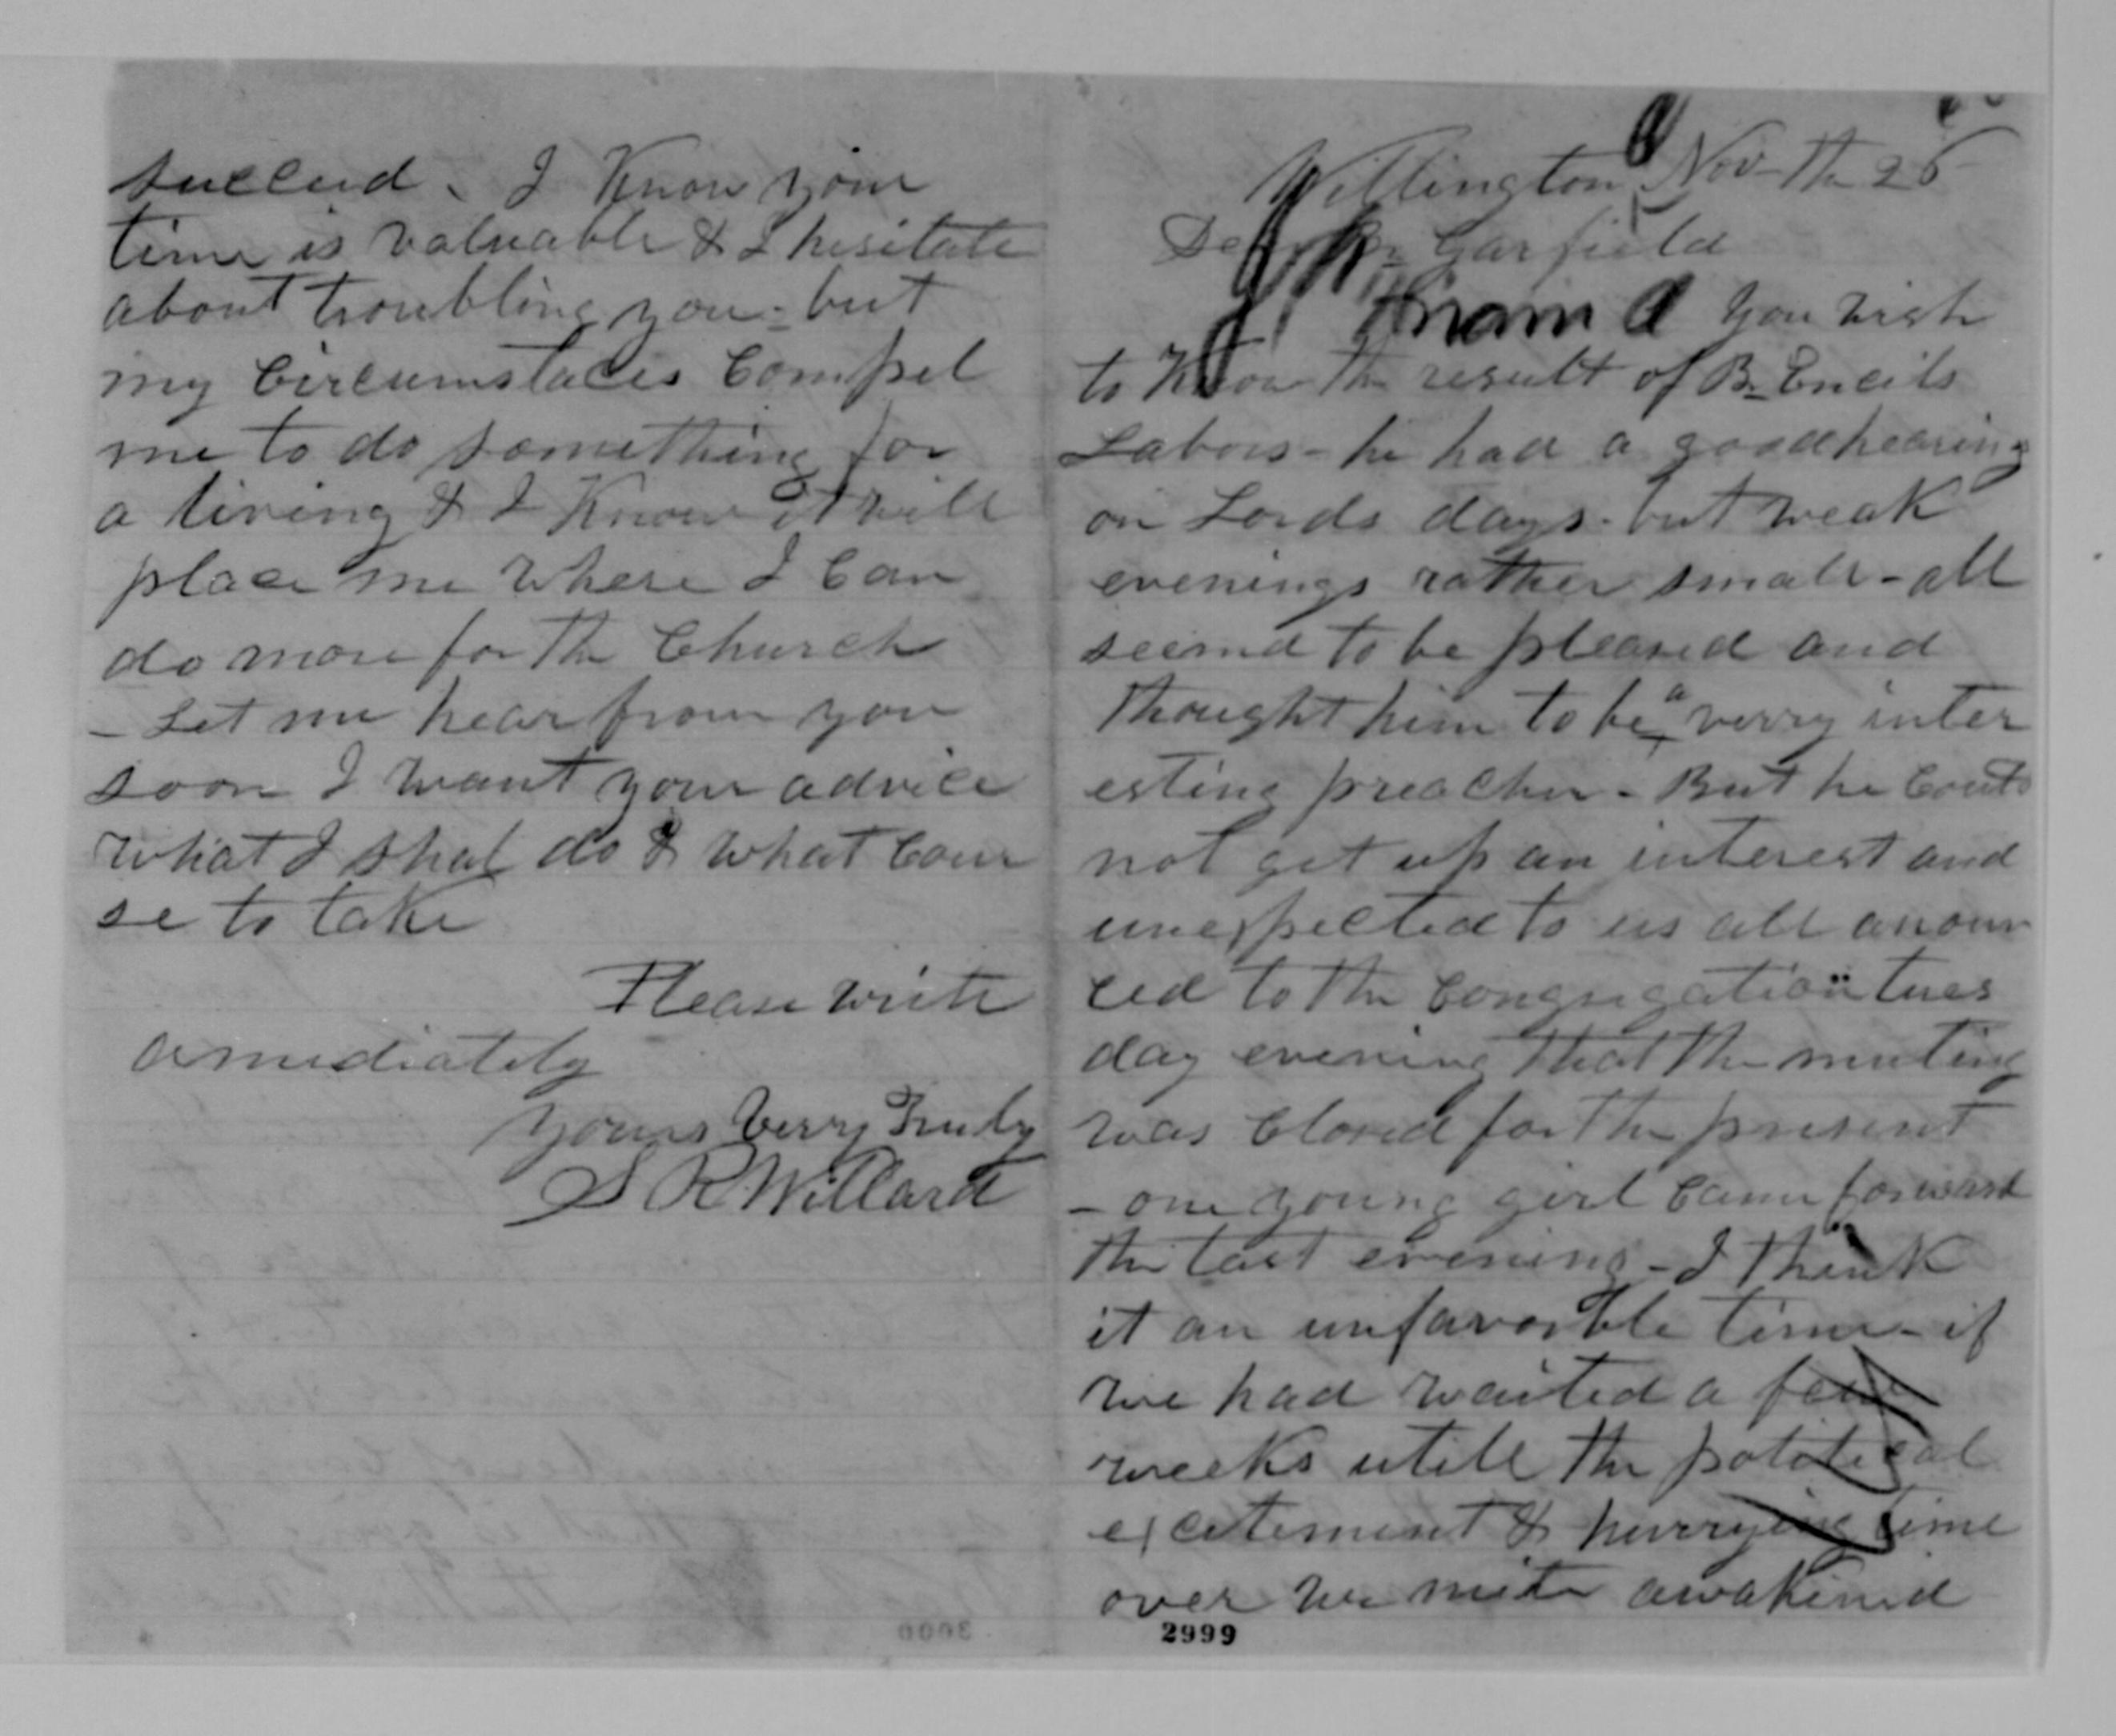 Willington Nov th 25
Dear Br Garfield
Hiram You wish
to Know the result of Br Encils
Labors - he had a good hearing
on Lords days. but weak
evenings rather small - all
seemd to be pleased and
thought him to be a verry inter
esting preacher - But he Could
not get up an interest and
unexpected to us all anoun
ced to the Congregation tues
day evening that the meeting
was Closed for the present
- one young girl Came forward
the last evening - I think
it an unfavorble time - if
we had waited a few
weeks utill the political
excitement & hurrying time
over we mite awakened
2999
succeed. I Know your
time is valuable & I hesitate
about troubling you - but
my Circumstaces Compel
me to do something for
a living & I Know it will
place me where I Can
do more for the Church
- Let me hear from you
soon I want your advice
what I shal do & what Cour
se to take
Please write
amediately
Yours Verry Truly
S R Willard
3000